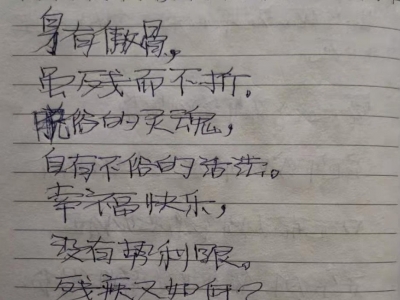 身有傲骨，
虽残而不折。
脱俗的灵魂，
自有不俗的活法。
幸福快乐，
没有势利眼。
残疾又如何？